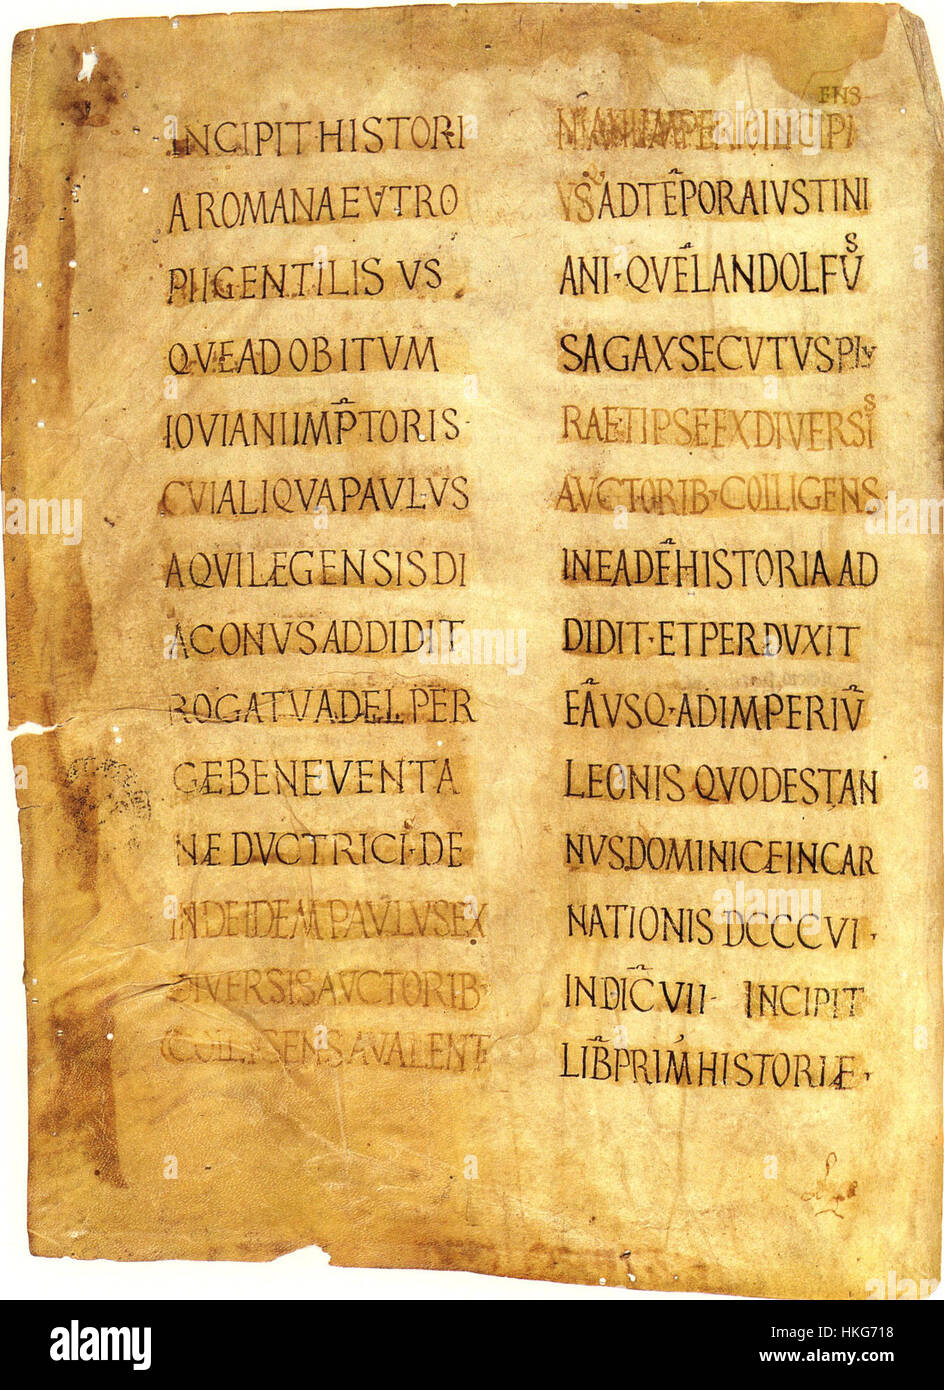 INCIPIT·HISTORI
A ROMANA EVTRO
PII GENTILIS VS
QVE AD OBITVM
IOVIANI IMP̅TORIS·
CVI ALIQVA PAVLVS
AQVILEGENSIS DI
ACONVS ADDIDIT
ROGATV ADELPER
GÆ BENEVENTA
NÆ DVCTRICI·DE
INDE IDEM PAVLVS EX
DIVERSIS AVCTORIB·
COLLIGENS A VALENT
ENS
NIANI IMPERIO INCIPI
VS AD TE̅PORA IVSTINI
ANI·QVE̅ LANDOLFVS
SAGAX SECVTVS PLV
RA ET IPSE EX DIVERSIS
AVCTORIB·COLLIGENS
IN EADE̅ HISTORIA AD
DIDIT·ET PERDVXIT
EA̅ VSQ·AD IMPERIV̅
LEONIS QVOD EST AN
NVS DOMINICE INCAR
NATIONIS DCCCVI·
INDIC̅ VII· INCIPIT
LIB̅ PRIM' HISTORIÆ·
alamy
Image ID: HKG718
www.alamy.com